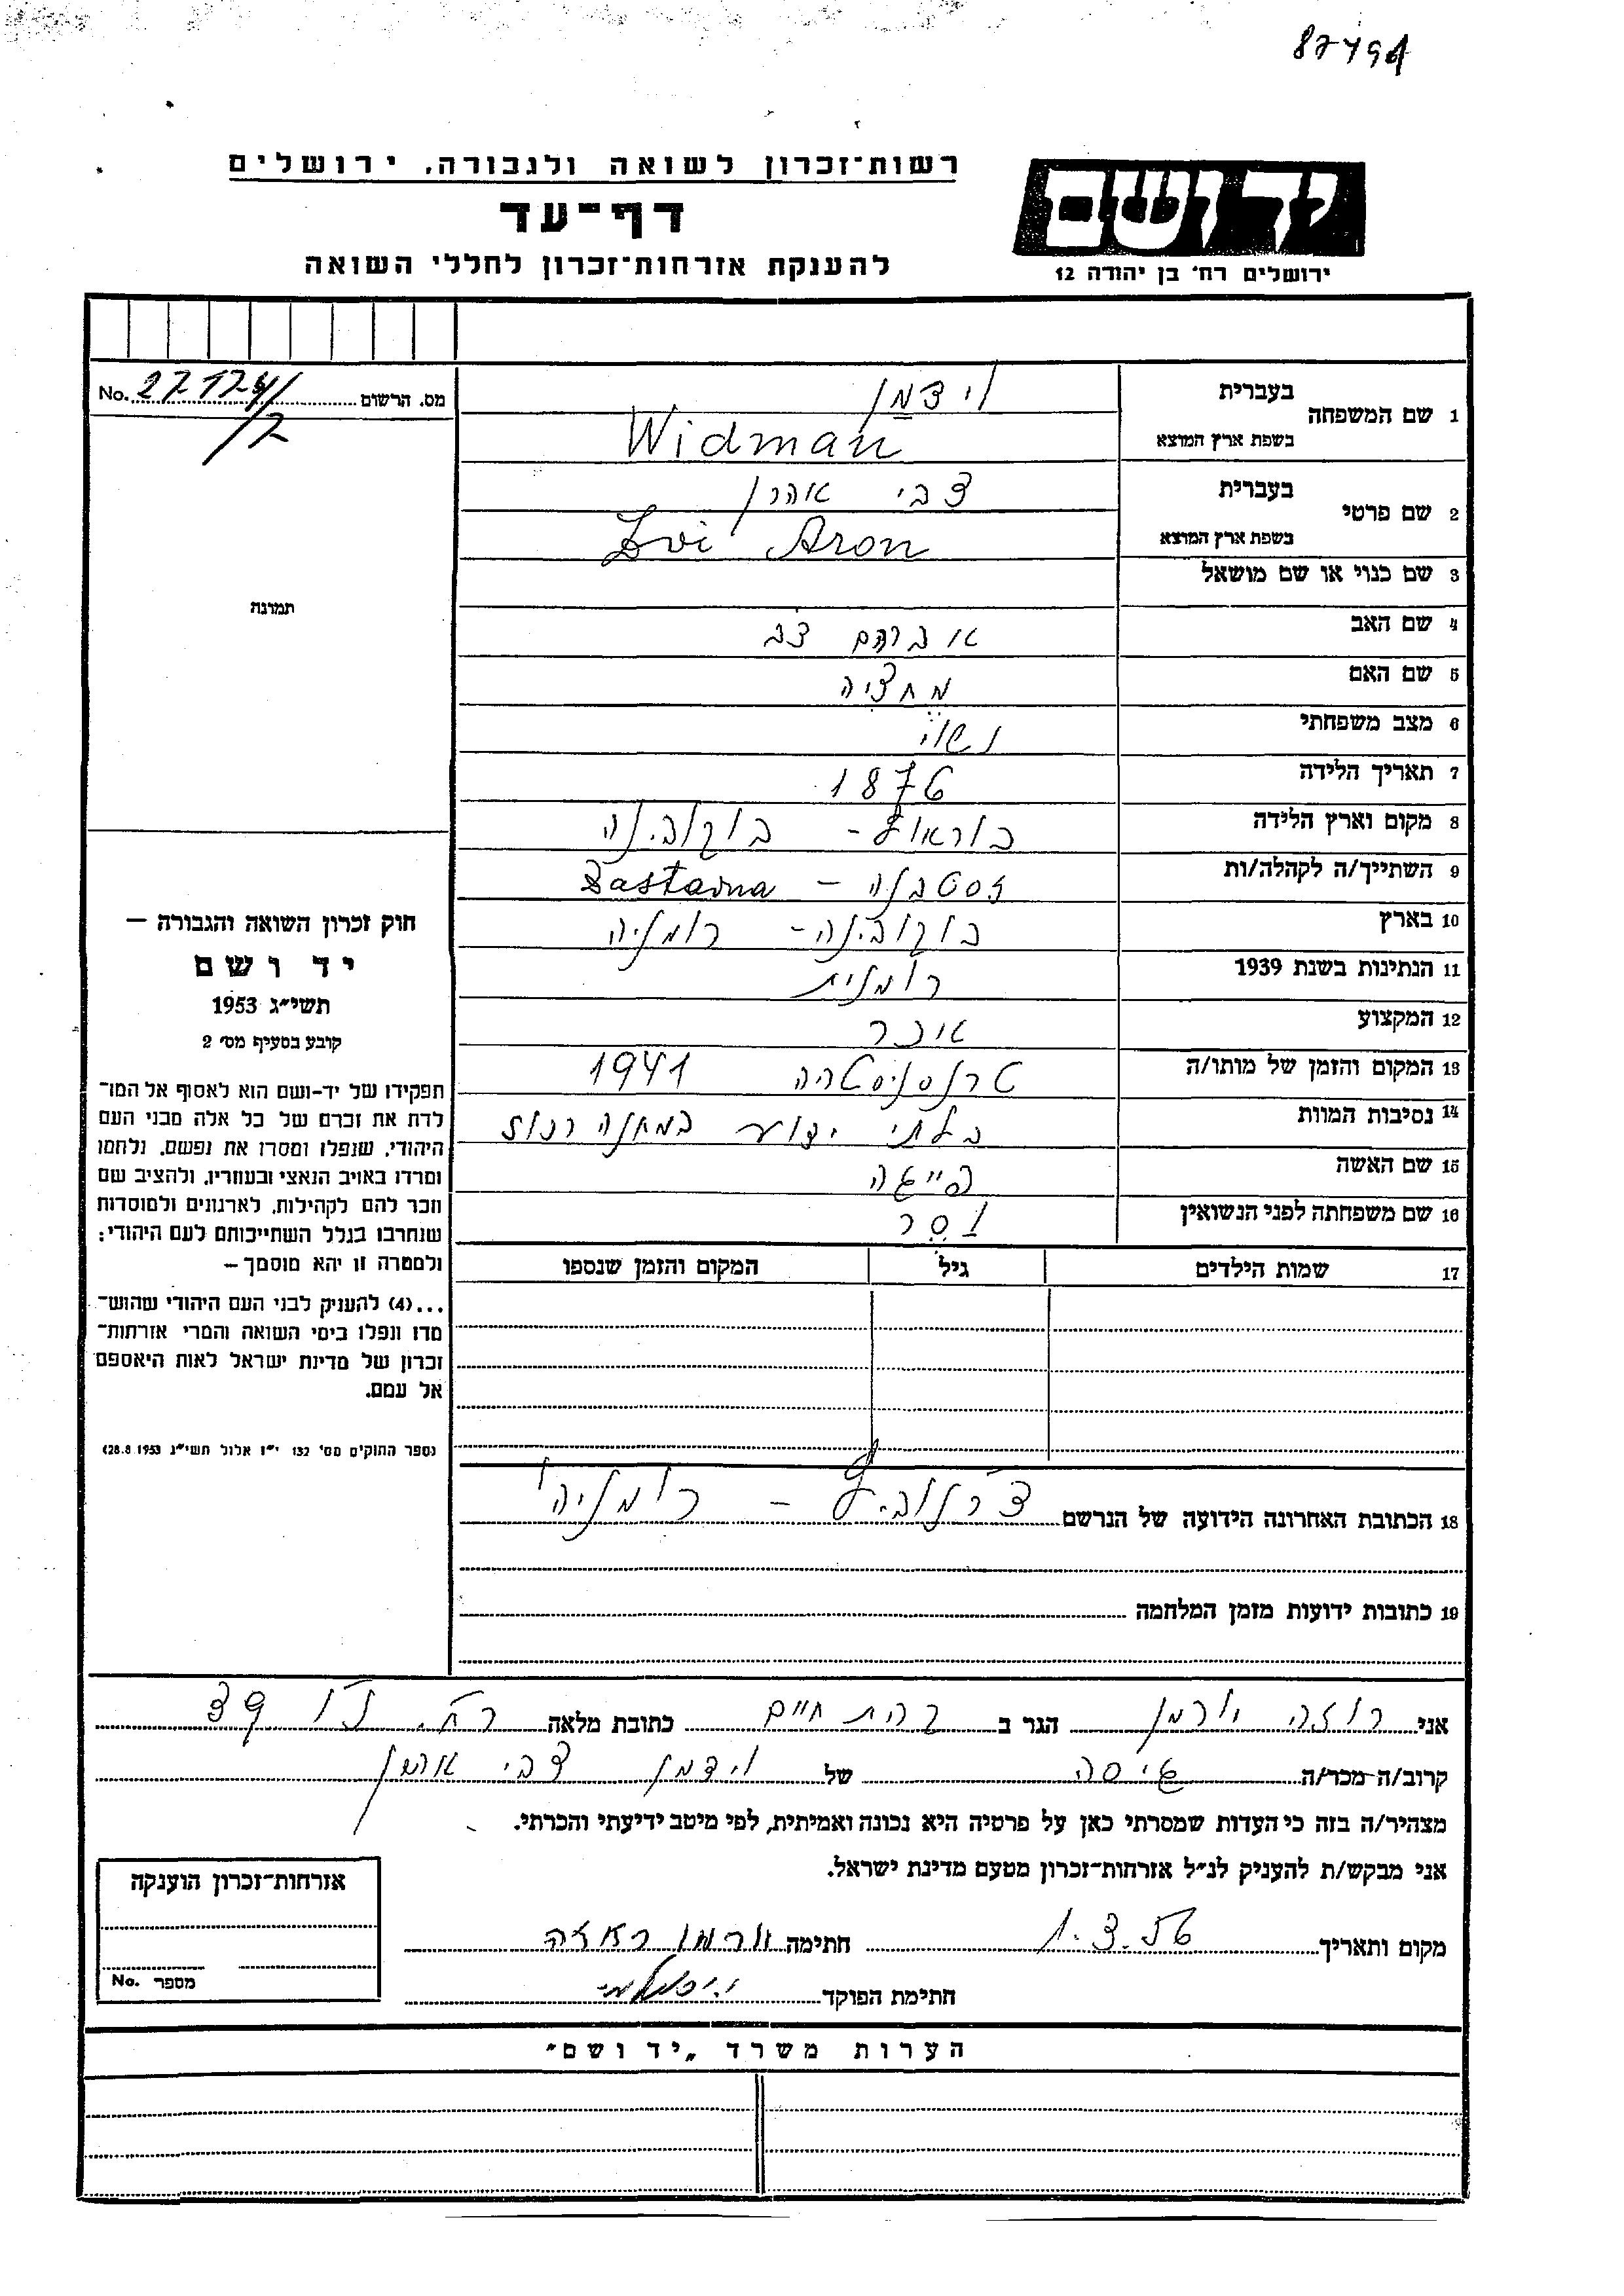 87494
רשות־זכרון לשואה ולגבורה, ירושלים
דף־עד
להענקת אזרחות־זכרון לחללי השואה
יד ושם
ירושלים רח' בן יהודה 12
No. מס. הרשום
1 שם המשפחה
בעברית וידמן
בשפת ארץ המוצא Widman
2 שם פרטי
בעברית צבי אהרן
בשפת ארץ המוצא Zvi Aron
3 שם כנוי או שם מושאל
4 שם האב אברהם
5 שם האם
6 מצב משפחתי נשוי
7 תאריך הלידה 1876
8 מקום וארץ הלידה בוקובינה
9 השתייך/ה לקהלה/ות זסטבנה – Zastavna
10 בארץ בוקובינה - רומניה
11 הנתינות בשנת 1939 רומנית
12 המקצוע אכר
13 המקום והזמן של מותו/ה טרנסניסטריה 1941
14 נסיבות המוות בלתי ידוע במחנה רכוז
15 שם האשה פייגה
16 שם משפחתה לפני הנשואין
17 שמות הילדים גיל המקום והזמן שנספו
18 הכתובת האחרונה הידועה של הנרשם צ'רנוביץ – רומניה
19 כתובות ידועות מזמן המלחמה
תמונה
חוק זכרון השואה והגבורה –
יד ושם
תשי״ג 1953
קובע בסעיף מס' 2
תפקידו של יד-ושם הוא לאסוף אל המו־
לדת את זכרם של כל אלה מבני העם
היהודי, שנפלו ומסרו את נפשם, נלחמו
ומרדו באויב הנאצי ובעוזריו, ולהציב שם
וזכר להם לקהילות, לארגונים ולמוסדות
שנחרבו בגלל השתייכותם לעם היהודי;
ולמטרה זו יהא מוסמך –
...(4) להעניק לבני העם היהודי שהוש־
מדו ונפלו בימי השואה והמרי אזרחות־
זכרון של מדינת ישראל לאות היאספם
אל עמם.
(ספר החוקים מס' 132 י״ז אלול תשי״ג 28.8.1953)
אני רוזה הגר ב קרית חיים כתובת מלאה
קרוב/ה מכר/ה גיסה של וידמן צבי אהרן
מצהיר/ה בזה כי העדות שמסרתי כאן על פרטיה היא נכונה ואמיתית, לפי מיטב ידיעתי והכרתי.
אני מבקש/ת להעניק לנ״ל אזרחות־זכרון מטעם מדינת ישראל.
מקום ותאריך 1.3.56 חתימה
חתימת הפוקד
אזרחות־זכרון הוענקה
מספר No.
הערות משרד „יד ושם״